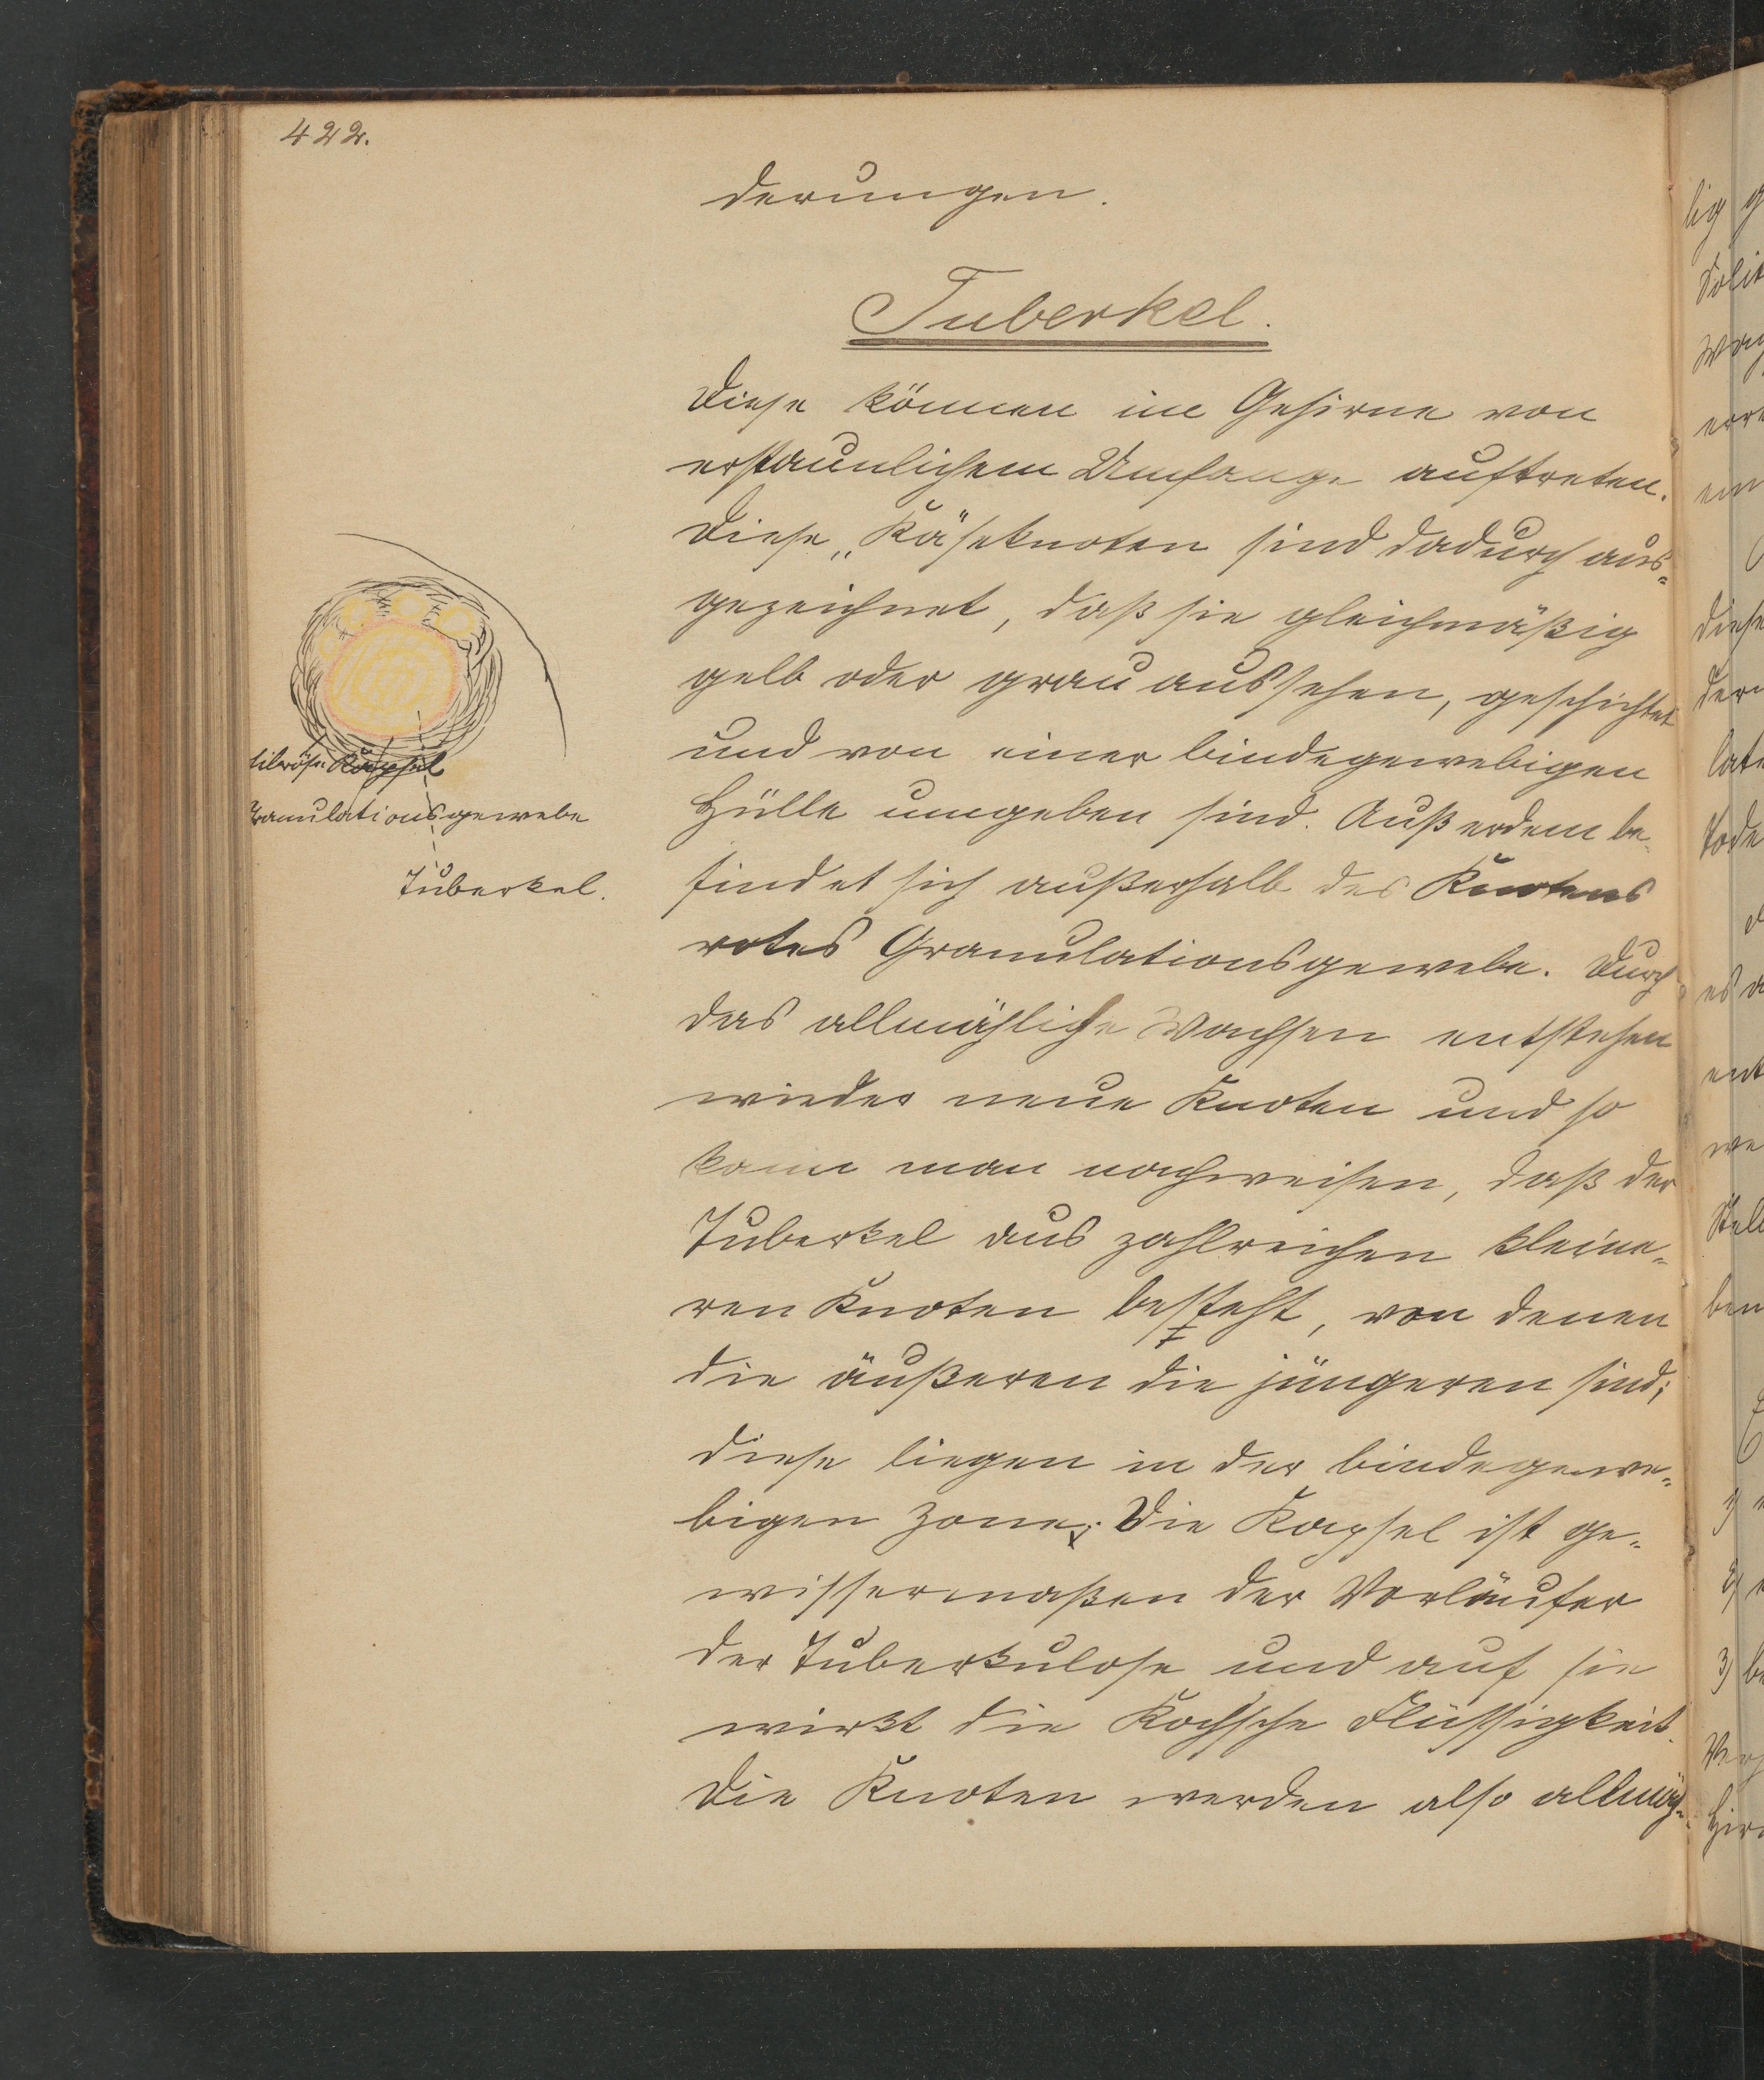 422.
derungen.
Tuberkel.
Diese können im Gehirne von
erstaunlichem Umfange auftreten.
Diese „Käseknoten sind dadurch aus-
gezeichnet, daß sie gleichmäßig
gelb oder grau aussehen, geschichtet
und von einer bindegewebigen
Hülle umgeben sind. Außerdem be-
findet sich außerhalb des Knotens
rotes Granulationsgewebe. Durch
das allmähliche Wachsen entstehen
wieder neue Knoten und so
kann man nachweisen, daß der
Tuberkel aus zahlreichen kleine-
ren Knoten besteht, von denen
die äußeren die jüngeren sind;
diese liegen in der bindegewe-
bigen Zone. Die Kapsel ist ge-
wissermaßen der Vorläufer
der Tuberkulose und auf sie
wirkt die Kochsche Flüssigkeit.
Die Knoten werden also allmäh-
fibröse Kapsel
Granulationsgewebe
Tuberkel.